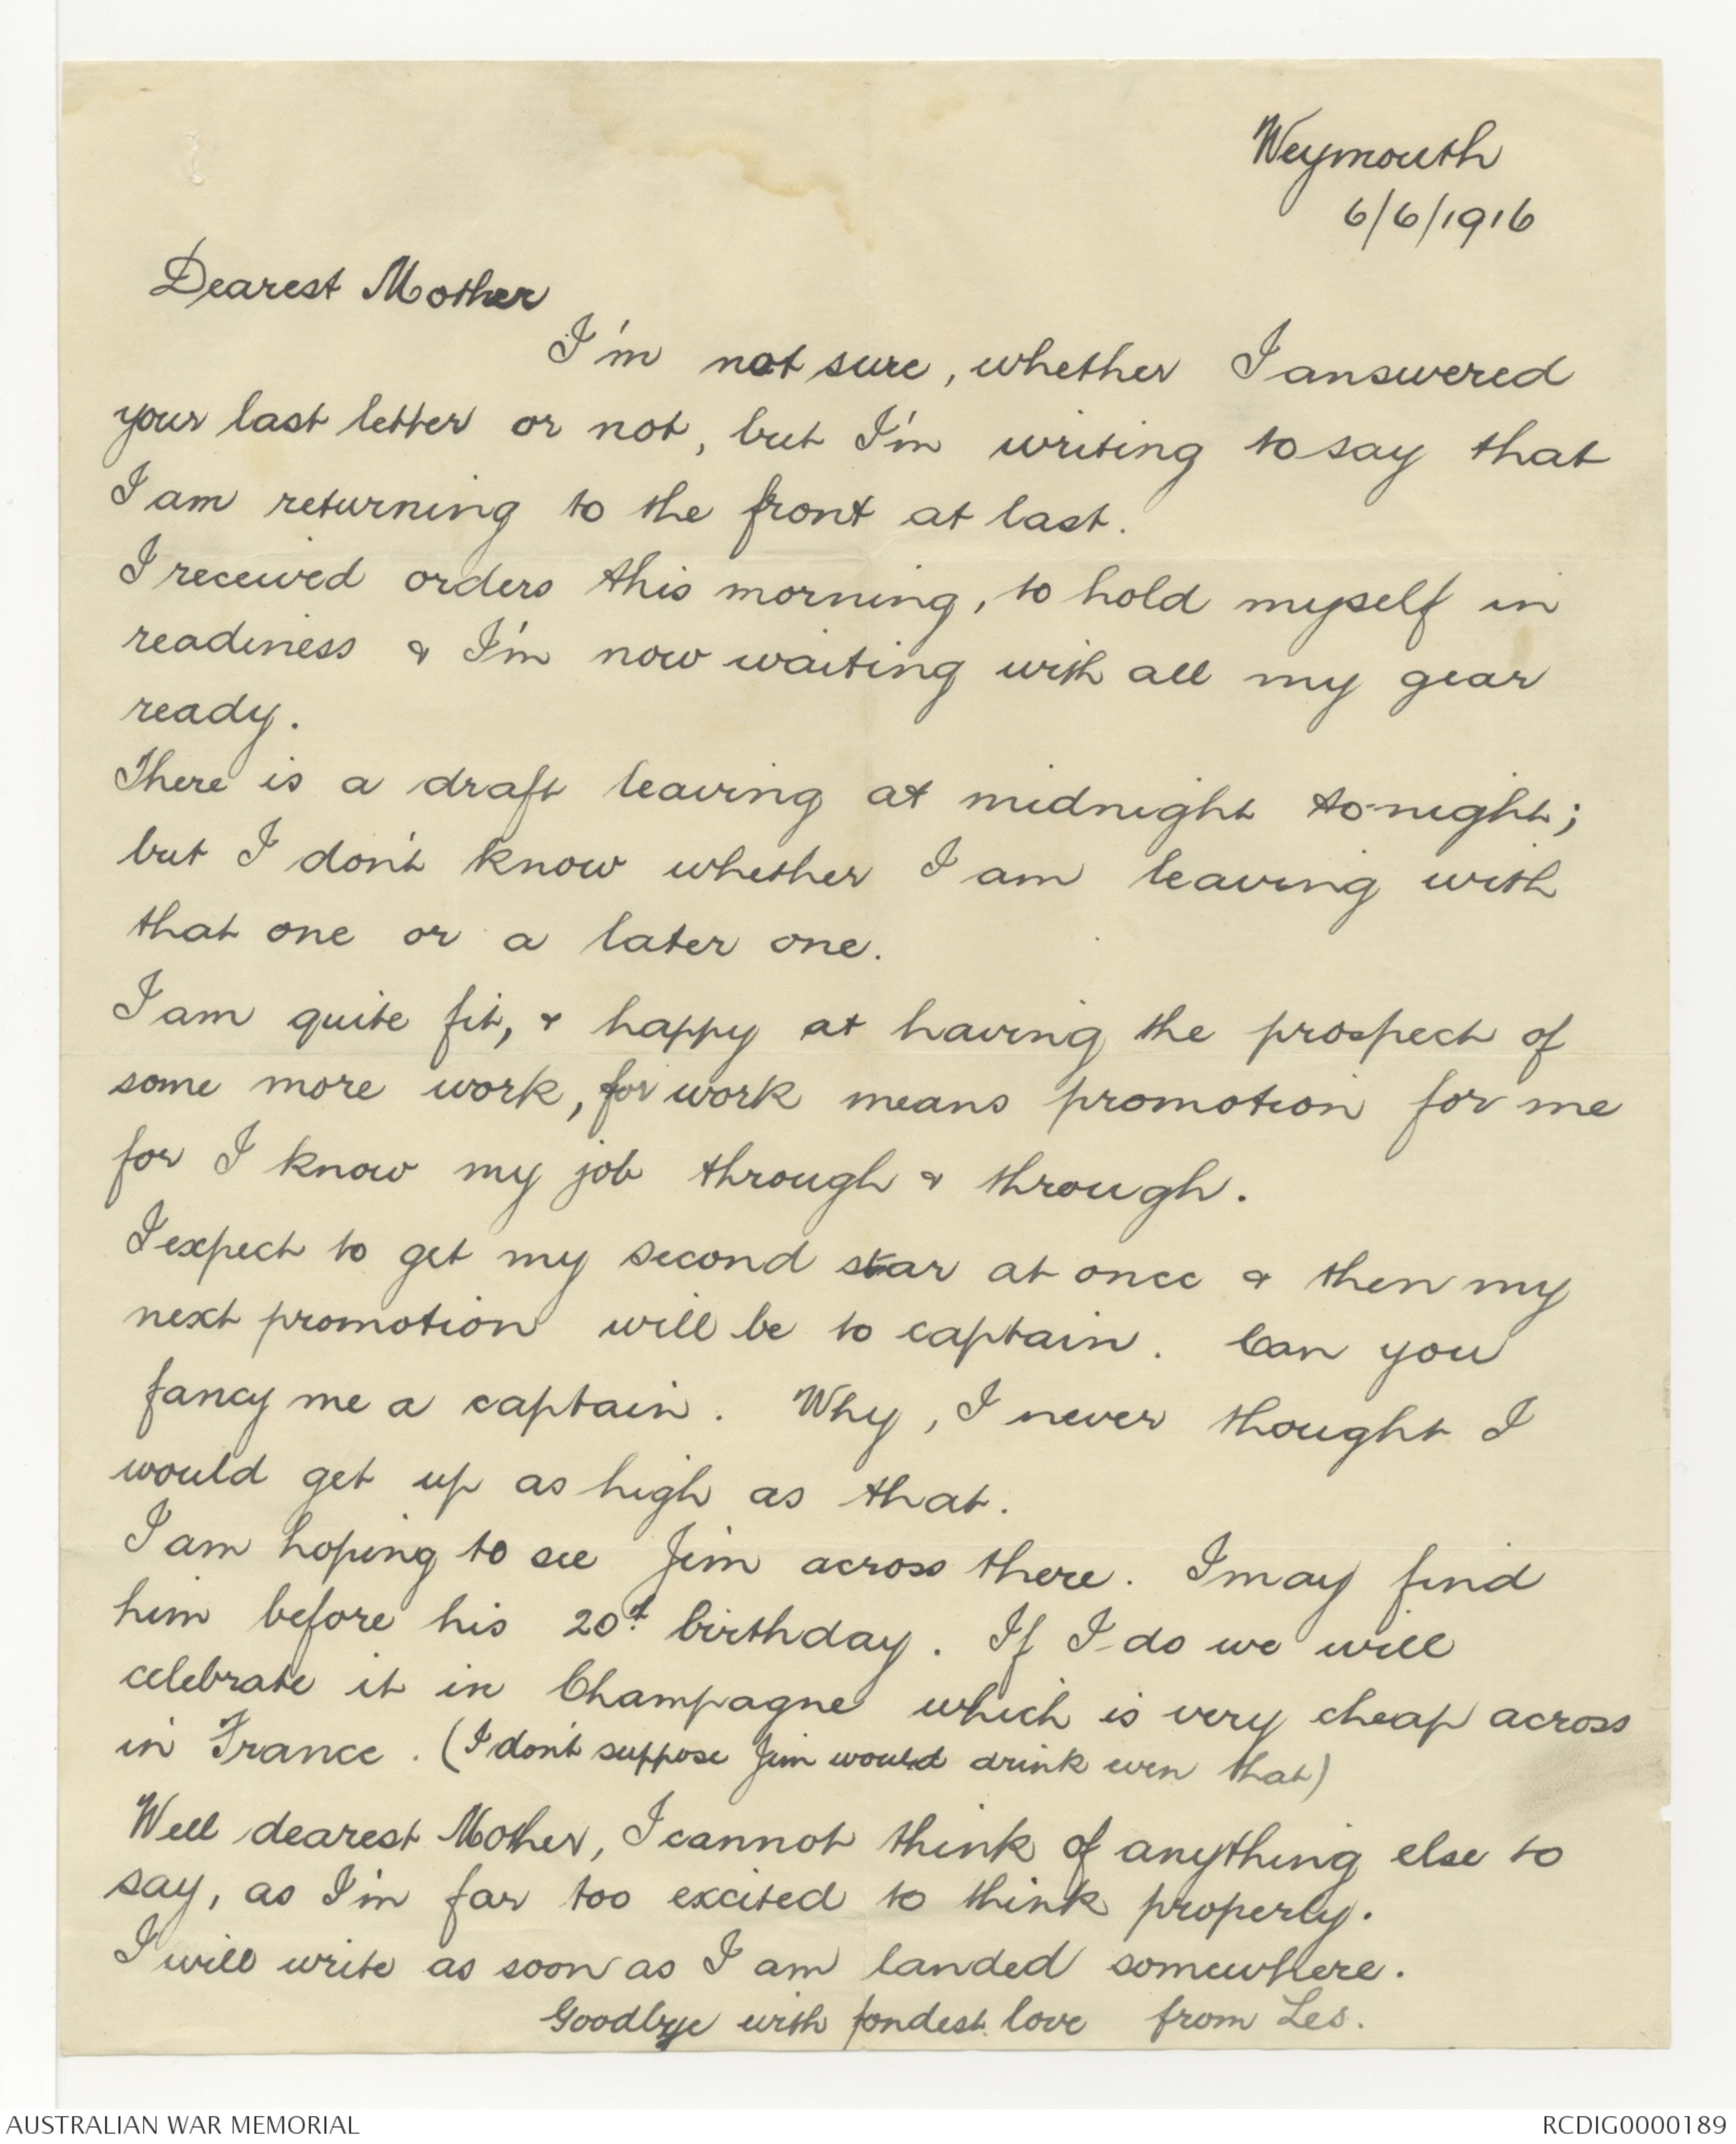 Weymouth
6/6/1916
Dearest Mother
I'm not sure, whether I answered
your last letter or not, but I'm writing to say that
I am returning to the front at last.
I received orders this morning, to hold myself in
readiness & I'm now waiting with all my gear
ready.
There is a draft leaving at midnight to-night;
but I don't know whether I am leaving with
that one or a later one.
I am quite fit, & happy at having the prospect of
some more work, for work means promotion for me
for I know my job through & through.
I expect to get my second star at once & then my
next promotion will be to captain. Can you
fancy me a captain. Why, I never thought I
would get up as high as that.
I am hoping to see Jim across there. I may find
him before his 20t birthday. If I do we will
celebrate it in Champagne which is very cheap across
in France. (I don't suppose Jim would drink even that)
Well dearest Mother, I cannot think of anything else to
say, as I'm far too excited to think properly.
I will write as soon as I am landed somewhere.
Goodbye with fondest love from Les.
AUSTRALIAN WAR MEMORIAL
RCDIG0000189